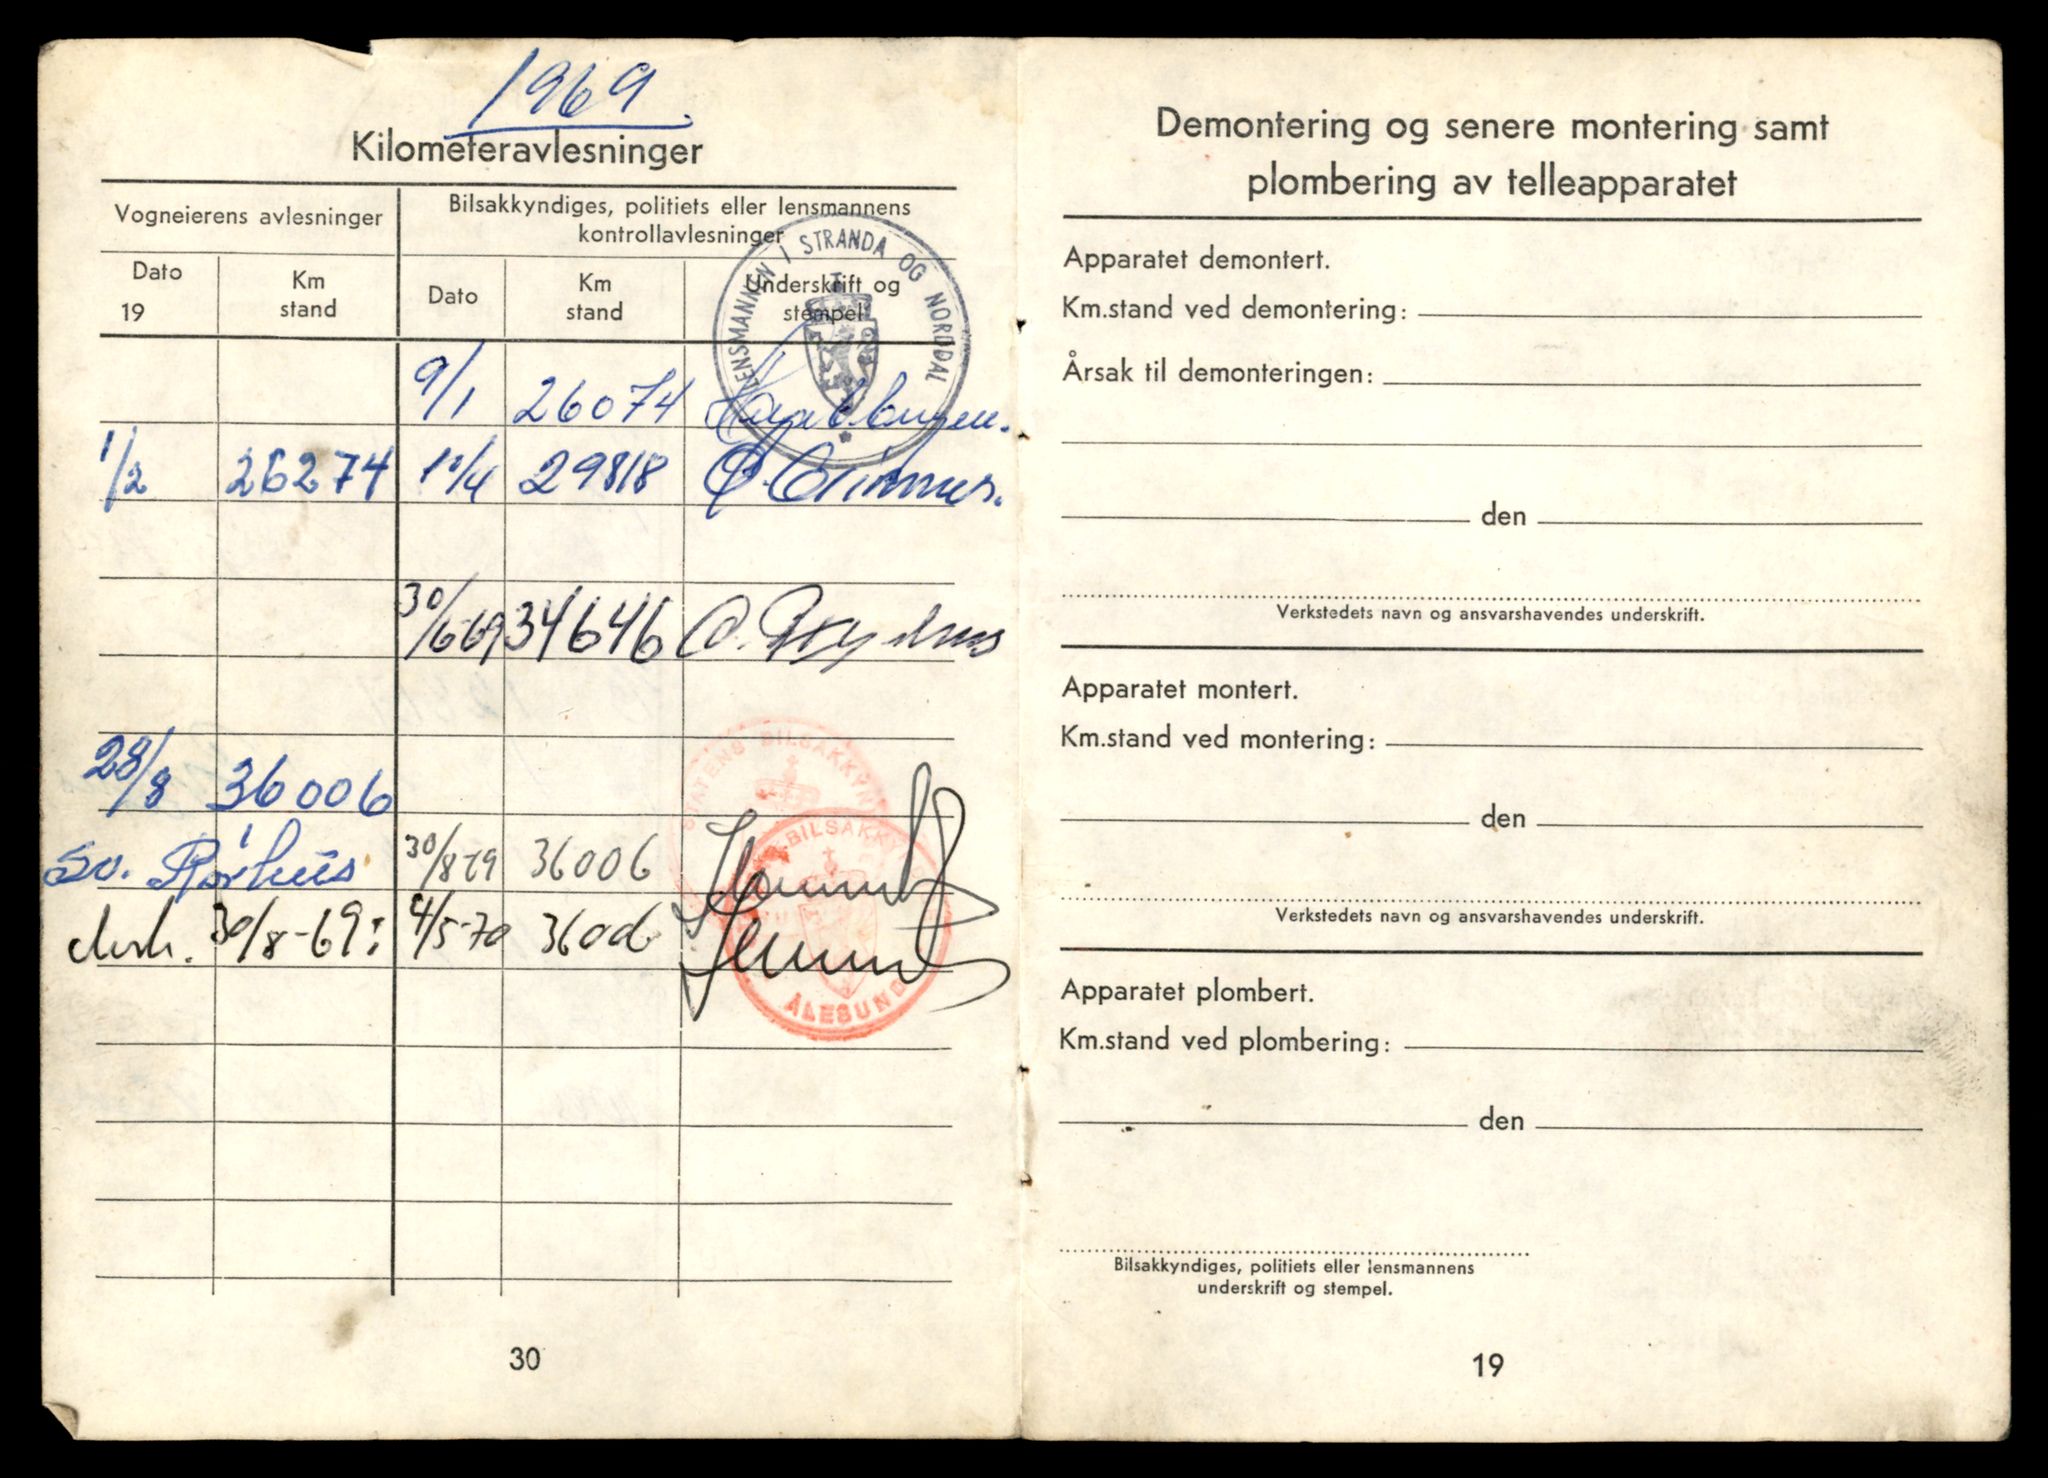 1969
Kilometeravlesninger
Vogneierens avlesninger
Bilsakkyndiges, politiets eller lensmannens
kontrollavlesninger
Dato
19
Km
stand
Dato
Km
stand
Underskrift og
stempel
LENSMANNEN I STRANDA OG NORDDAL
9/1 26074
1/2 26274 10/4 29818
30/6-69 34646 O.
STATENS BILSAKKYN
28/8 36006
30/8-69 36006
BILSAKKY
30/8-69: 4/5-70 36006
ÅLESUND
30
Demontering og senere montering samt
plombering av telleapparatet
Apparatet demontert.
Km.stand ved demontering:
Årsak til demonteringen:
den
Verkstedets navn og ansvarshavendes underskrift.
Apparatet montert.
Km.stand ved montering:
den
Verkstedets navn og ansvarshavendes underskrift.
Apparatet plombert.
Km.stand ved plombering:
den
Bilsakkyndiges, politiets eller lensmannens
underskrift og stempel.
19